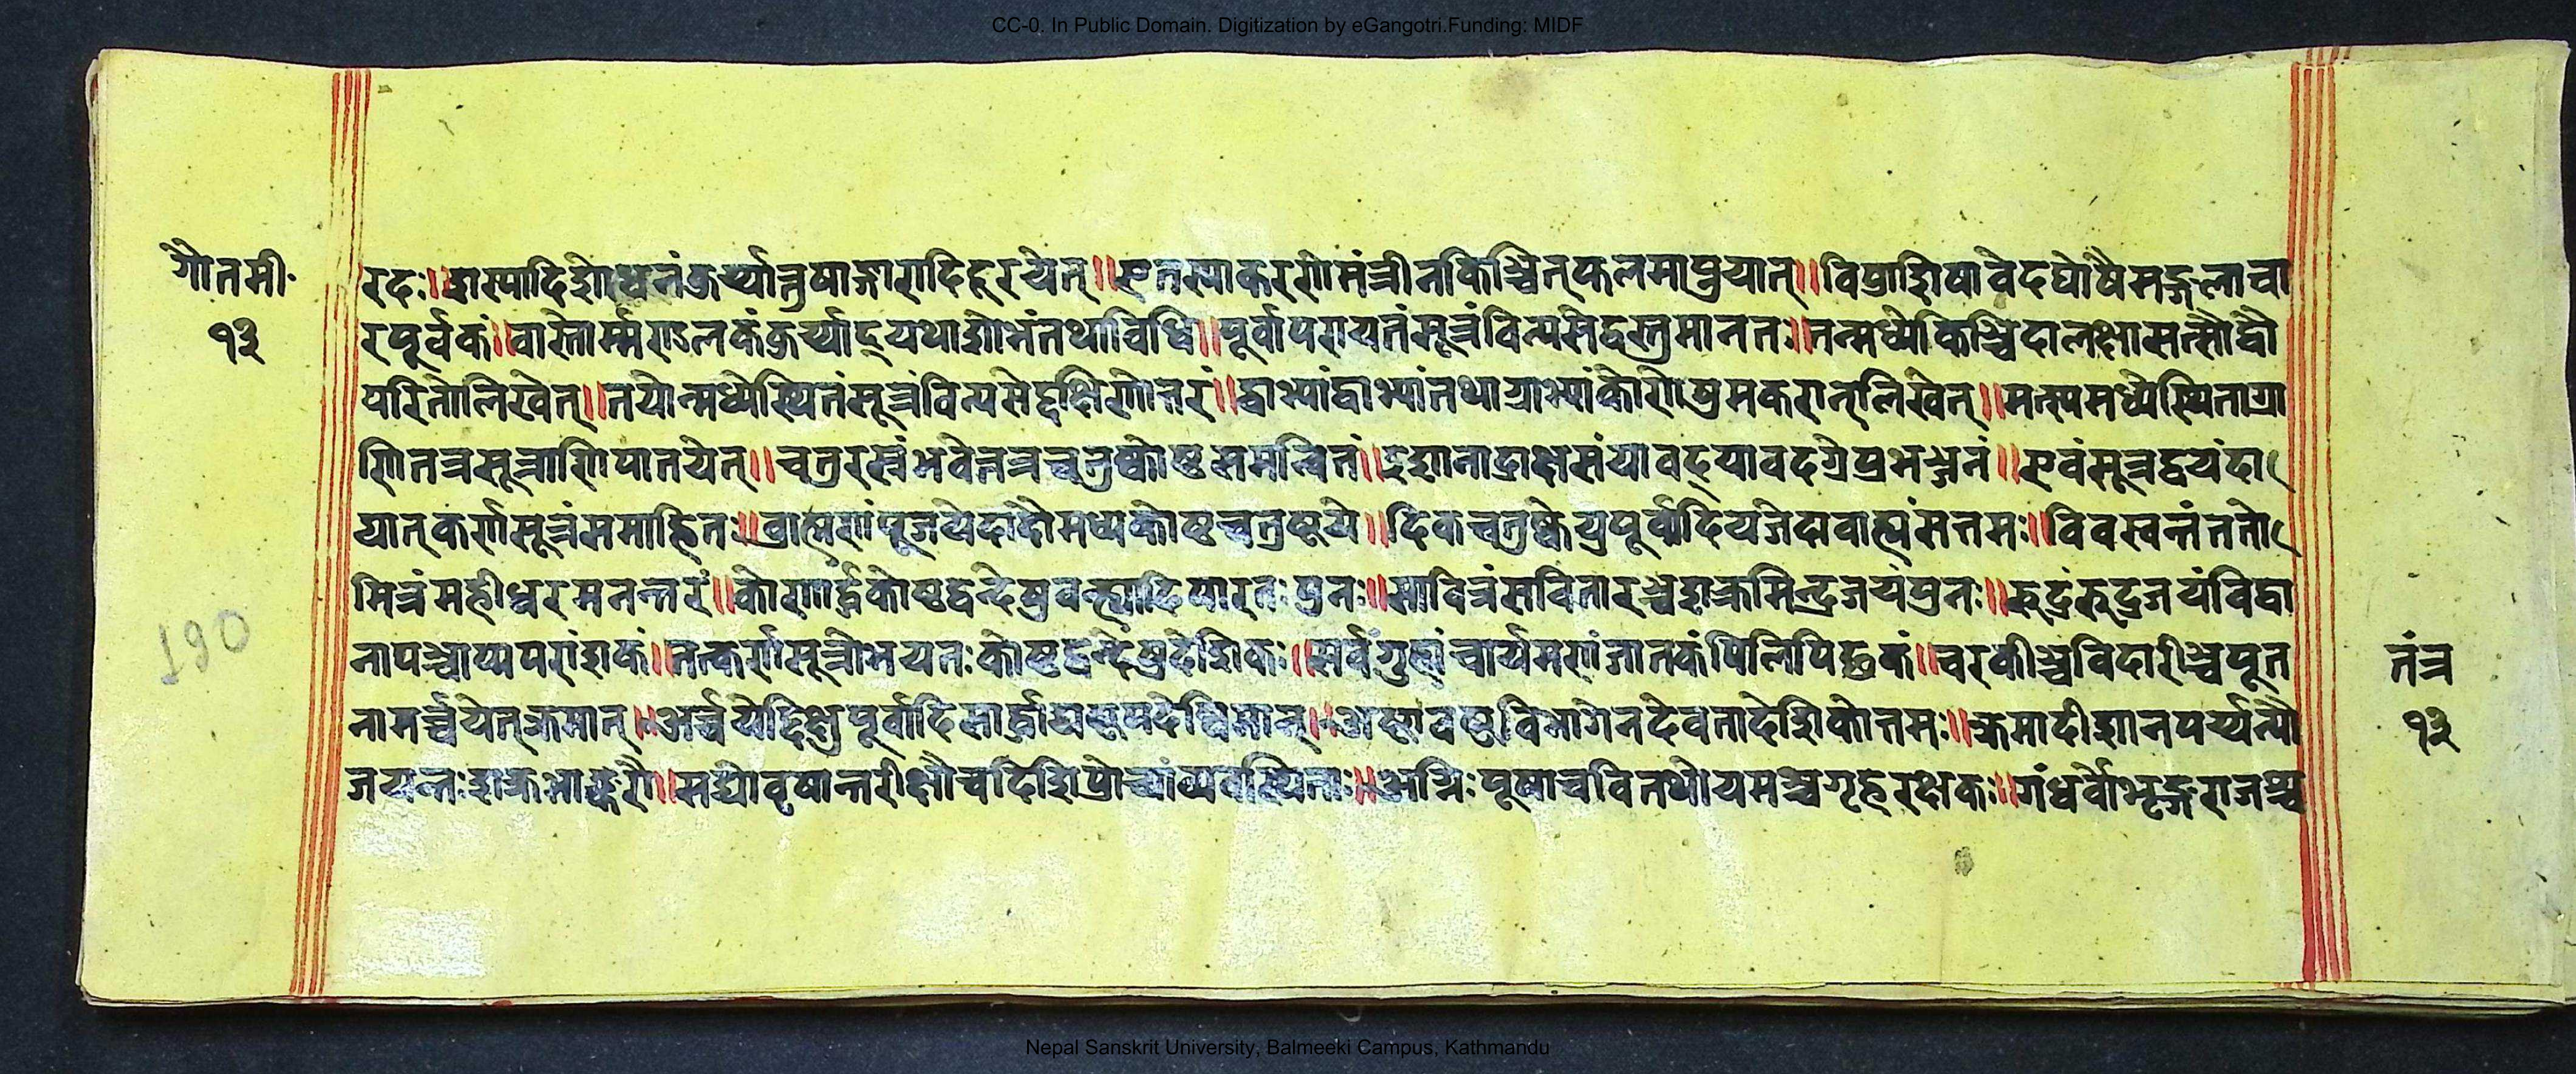 CC-0. In Public Domain. Digitization by eGangotri.Funding: MIDF
गौतमी॰
१३
रदः॥शस्पादिशोधनंकुर्य्यात्तुषाङ्गारादिहृरयेत्॥एतस्याकरणोमंत्रीनकिञ्चित्फलमाप्नुयात्॥विप्राशिषावेदघोषैमङ्गलाचा
रपूर्वकं॥वास्तोर्म्मराडलकंकुर्य्याद्यथाशोभंतथाविधि॥पूर्वापरायतंसूत्रंविन्यसेद्धस्तमानतः॥तन्मध्येकिञ्चिदालक्षासत्सौद्वौ
परितोलिखेत्॥तयोन्मध्येस्थितंसूत्रंविन्यसेद्दक्षिणोत्तरं॥द्वाभ्यांद्वाभ्यांतथाग्राभ्यांकोणोषुमकरान्लिखेत्॥मत्स्यमध्येस्थिताग्रा
णितत्रसूत्राणिपातयेत्॥चतुरस्त्रंभवेत्तत्रचतुष्कोष्ठसमन्वितं॥इशानाद्राक्षसंयावद्यावदग्रेप्रभञ्जनं॥एवंसूत्रद्वयंदा
द्यात्कर्णसूत्रंसमाहितः॥ब्राह्मणंपूजयेदादौमध्यकोष्ठचतुष्टये॥दिक्चतुष्केषुपूर्वादियजेदावाह्यसत्तमः॥विवस्वन्तंततो
मित्रंमहीधरमनन्तरं॥कोणार्द्धकोष्ठद्वन्देषुवह्न्यादिपारतःपुनः॥सावित्रंसवितारञ्चशक्रमिन्द्रजयंपुनः॥रुद्रंरुद्रजयंविद्वा
नापञ्चाप्यपरांशकं॥तत्कर्णसूत्रोभयतःकोष्ठद्वन्देषुदेशिकः॥सर्वंगुहांचार्यमणंजातकंपिलिपिछकं॥चरकीञ्चविदारीञ्चपूत
नामर्च्चयेत्क्रमात्॥अर्च्चयेद्दिक्षुपूर्वादिसार्द्धाद्यष्टपदेष्विमान्॥अष्टावष्टविभागेनदेवतादेशिकोत्तमः॥क्रमादीशानपर्य्यन्यौ
जयन्तःशक्रभास्करौ॥सद्योवृषान्तरीक्षौचदिशिप्रोच्यांव्यवस्थिताः॥अग्निःपूषाचवितथोयमश्चगृहरक्षकः॥गंधर्वोभृङ्गराजश्च
190
तंत्र
१३
Nepal Sanskrit University, Balmeeki Campus, Kathmandu